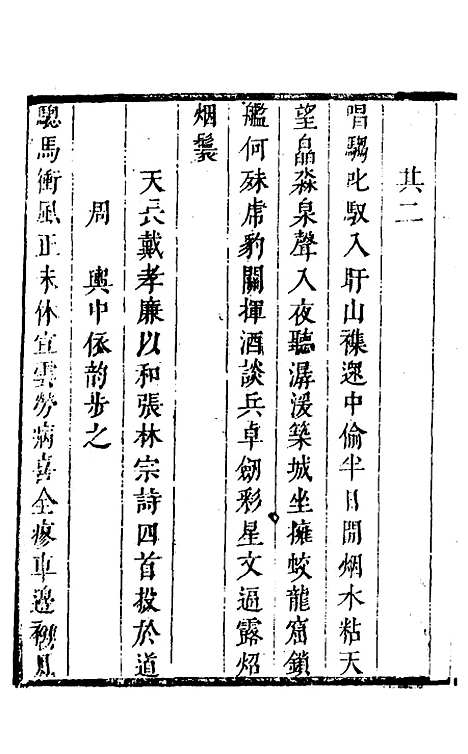 其二
唱騶叱馭入盱山襍遝中偷半日閒烟水粘天
望皛淼泉聲入夜聽潺湲築城坐擁蛟龍窟鎖
艦何殊虎豹關揮酒談兵卓劒彩星文逼露炤
烟鬟
天長戴孝廉以和張林宗詩四首投於道
周輿中依韵步之
驄馬衝風正未休宣雲勞病喜全瘳車邊